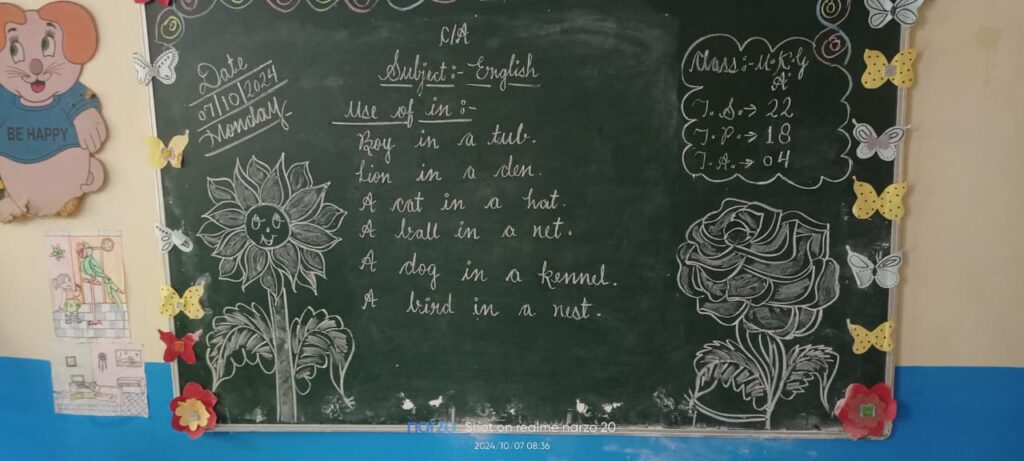 C/A
Date
07/10/2024
Monday
Subject:- English
Use of in :-
Boy in a tub.
Lion in a den.
A cat in a hat.
A ball in a net.
A dog in a kennel.
A bird in a nest.
Class:- U.K.G
A
T. S. → 22
T. P. → 18
T. A. → 04
BE HAPPY
narzo Shot on realme narzo 20
2024/10/07 08:36